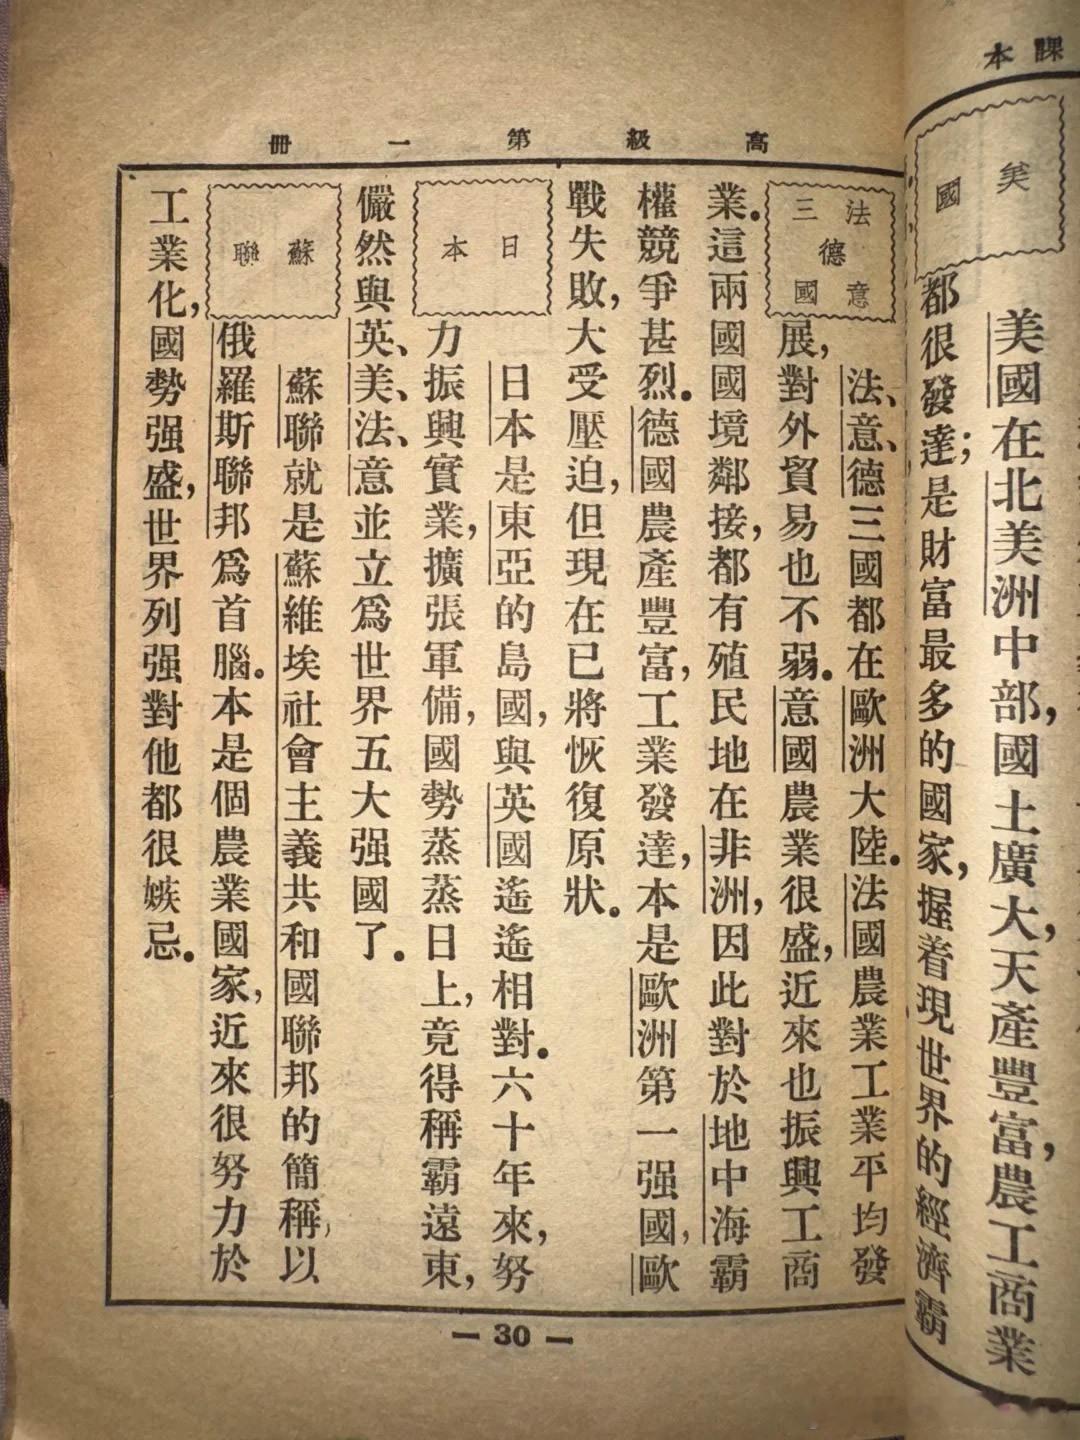 課本
美國
美國在北美洲中部，國土廣大，天產豐富，農工商業
都很發達；是財富最多的國家，握着現世界的經濟霸
高級第一冊
法德意三國
法、意、德三國都在歐洲大陸。法國農業工業平均發
展，對外貿易也不弱。意國農業很盛，近來也振興工商
業。這兩國國境鄰接，都有殖民地在非洲，因此對於地中海霸
權競爭甚烈。德國農產豐富，工業發達，本是歐洲第一强國，歐
戰失敗，大受壓迫，但現在已將恢復原狀。
日本
日本是東亞的島國，與英國遙遙相對。六十年來，努
力振興實業，擴張軍備，國勢蒸蒸日上，竟得稱霸遠東，
儼然與英、美、法、意並立爲世界五大强國了。
蘇聯
蘇聯就是蘇維埃社會主義共和國聯邦的簡稱，以
俄羅斯聯邦爲首腦。本是個農業國家，近來很努力於
工業化，國勢强盛，世界列强對他都很嫉忌。
— 30 —